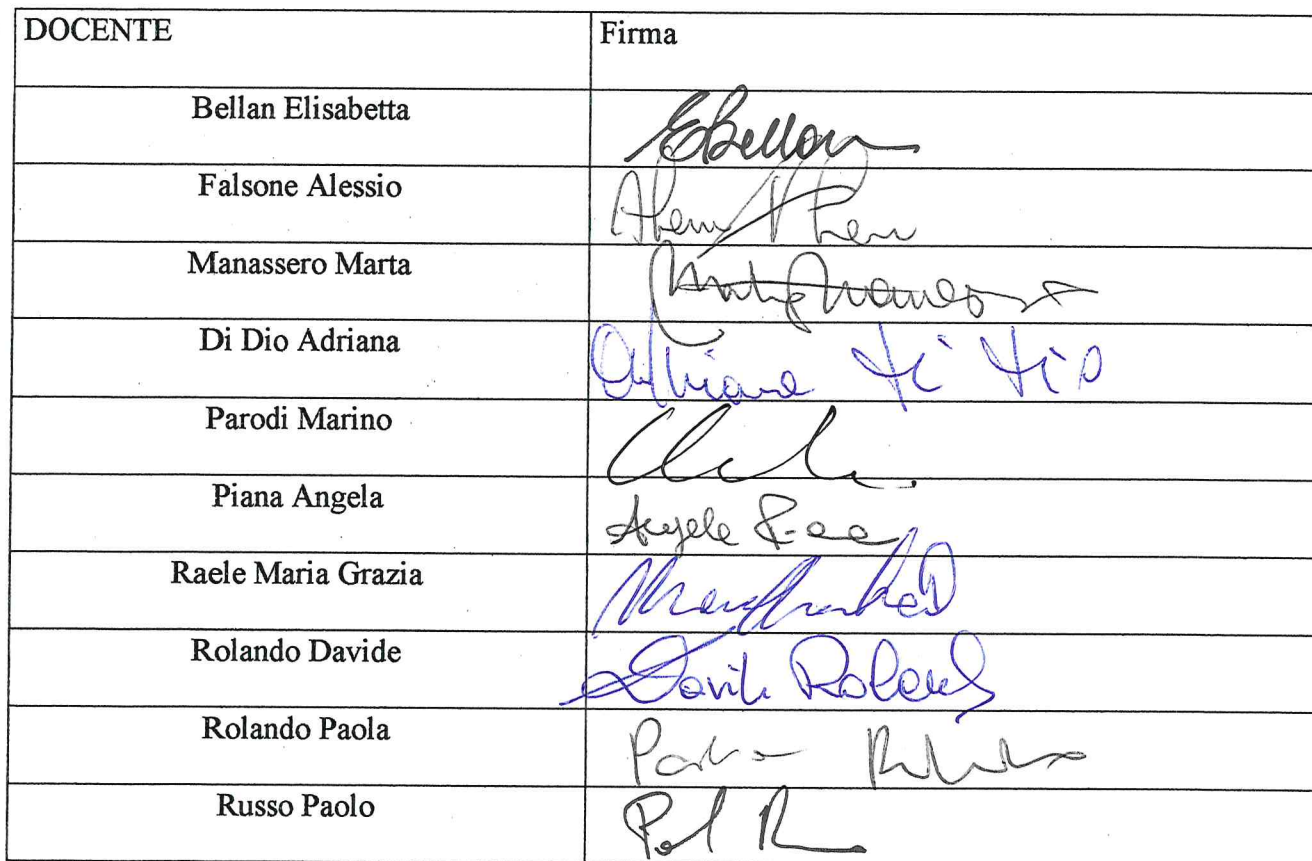 DOCENTE Firma
Bellan Elisabetta EBellan
Falsone Alessio
Manassero Marta
Di Dio Adriana Adriana Di Dio
Parodi Marino
Piana Angela Angela
Raele Maria Grazia
Rolando Davide Davide Rolando
Rolando Paola
Russo Paolo